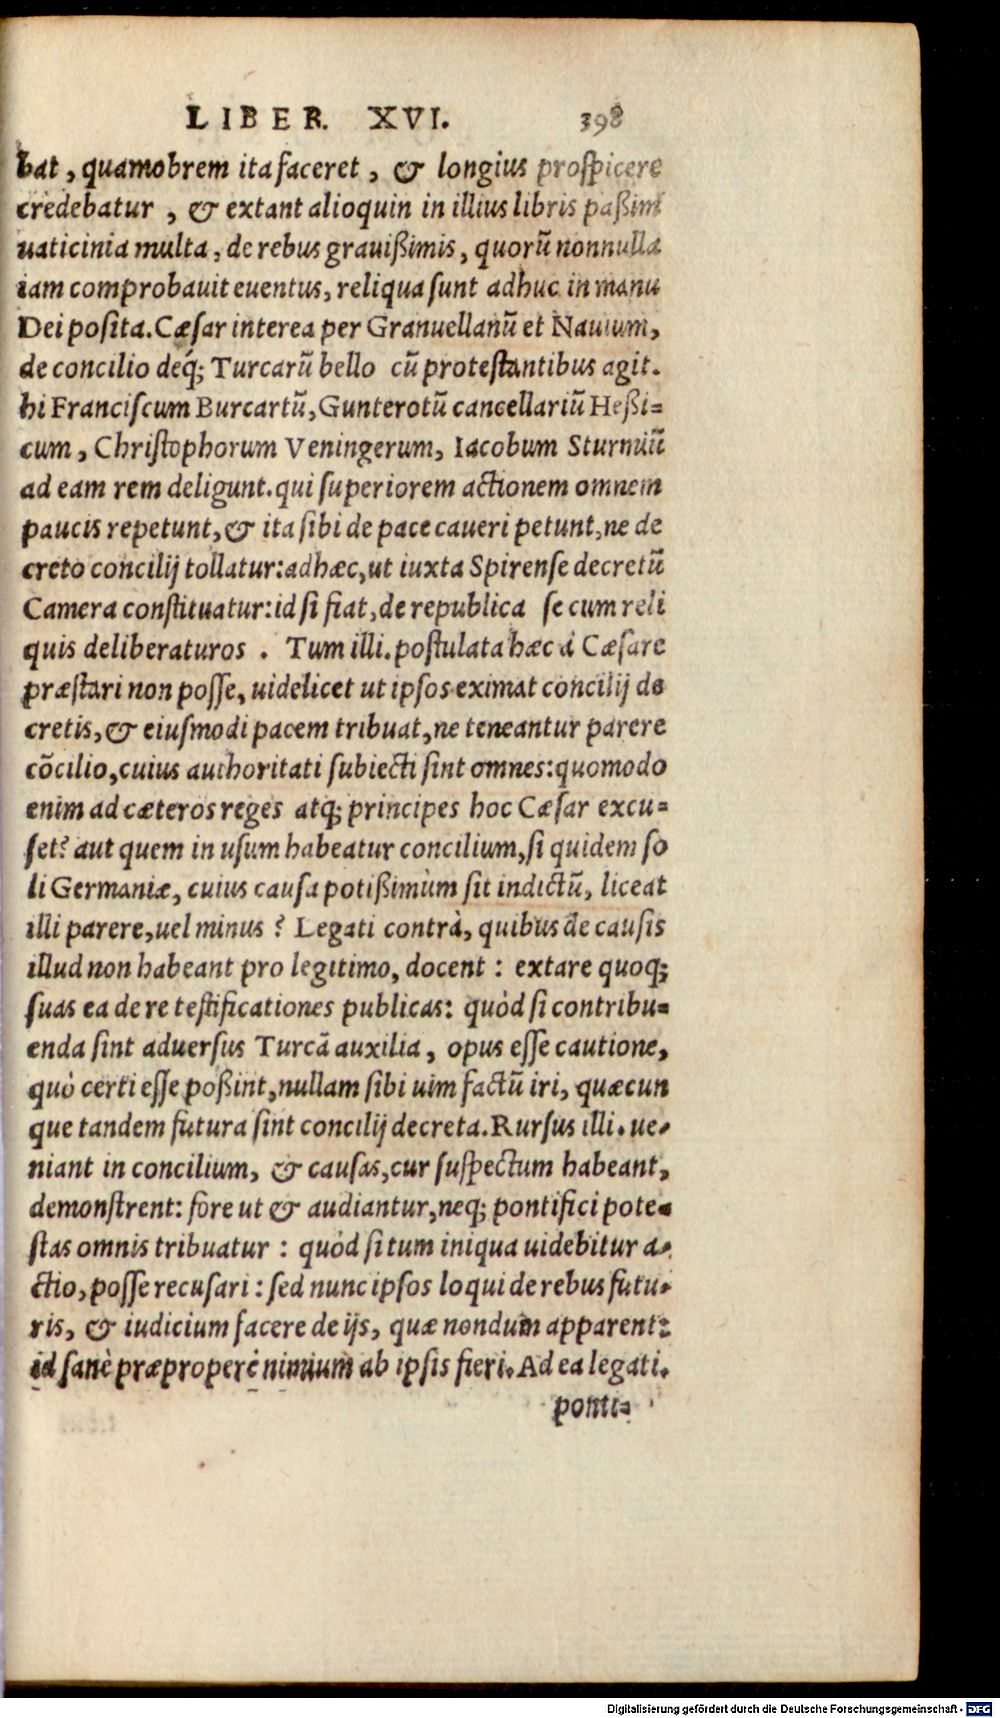 LIBER. XVI. 398
bat, quamobrem ita faceret, & longius prospicere
credebatur, & extant alioquin in illius libris paßim
uaticinia multa, de rebus grauißimis, quorũ nonnulla
iam comprobauit euentus, reliqua sunt adhuc in manu
Dei posita. Cæsar interea per Granuellanũ et Nauium,
de concilio deq́; Turcarũ bello cũ protestantibus agit.
hi Franciscum Burcartũ, Gunterotũ cancellariũ Heßi=
cum, Christophorum Veningerum, Iacobum Sturmiũ
ad eam rem deligunt. qui superiorem actionem omnem
paucis repetunt, & ita sibi de pace caueri petunt, ne de
creto concilij tollatur: adhæc, ut iuxta Spirense decretũ
Camera constituatur: id si fiat, de republica se cum reli
quis deliberaturos. Tum illi. postulata hæc à Cæsare
præstari non posse, uidelicet ut ipsos eximat concilij de
cretis, & eiusmodi pacem tribuat, ne teneantur parere
cõcilio, cuius authoritati subiecti sint omnes: quomodo
enim ad cæteros reges atq; principes hoc Cæsar excu=
set? aut quem in usum habeatur concilium, si quidem so
li Germaniæ, cuius causa potißimùm sit indictũ, liceat
illi parere, uel minus? Legati contrà, quibus de causis
illud non habeant pro legitimo, docent: extare quoq;
suas ea de re testificationes publicas: quòd si contribu=
enda sint aduersus Turcã auxilia, opus esse cautione,
quò certi esse poßint, nullam sibi uim factũ iri, quæcun
que tandem futura sint concilij decreta. Rursus illi. ue=
niant in concilium, & causas, cur suspectum habeant,
demonstrent: fore ut & audiantur, neq; pontifici pote=
stas omnis tribuatur: quòd si tum iniqua uidebitur a=
ctio, posse recusari: sed nunc ipsos loqui de rebus futu=
ris, & iudicium facere de ijs, quæ nondum apparent:
id sanè præproperè nimium ab ipsis fieri. Ad ea legati.
ponti=
Digitalisierung gefördert durch die Deutsche Forschungsgemeinschaft - DFG